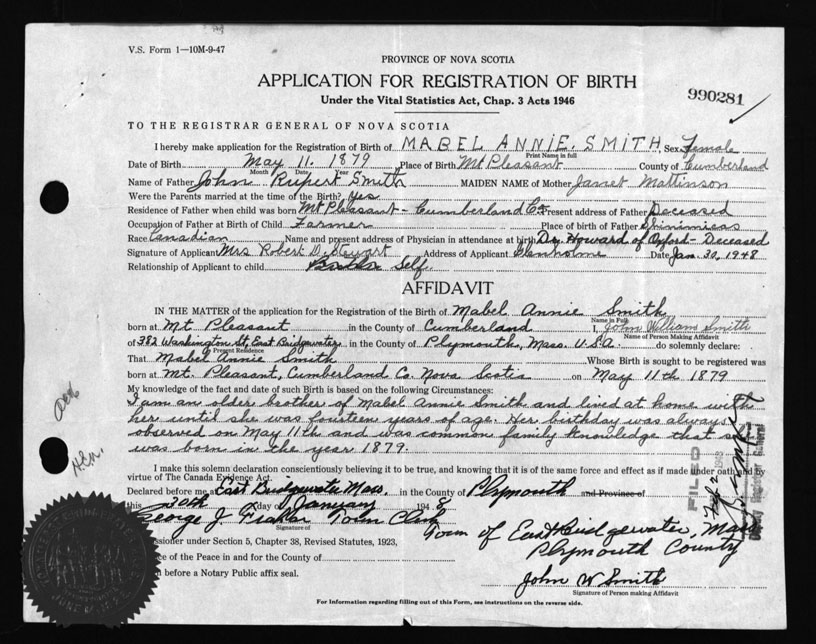 V.S. Form 1—10M-9-47
PROVINCE OF NOVA SCOTIA
APPLICATION FOR REGISTRATION OF BIRTH
990281
Under the Vital Statistics Act, Chap. 3 Acts 1946
TO THE REGISTRAR GENERAL OF NOVA SCOTIA
I hereby make application for the Registration of Birth of MABEL ANNIE SMITH, Sex Female
Print Name in full
Date of Birth May 11. 1879 Place of Birth Mt Pleasant County of Cumberland
Month Date Year
Name of Father John Rupert Smith MAIDEN NAME of Mother Janet Mattinson
Were the Parents married at the time of the Birth? Yes
Residence of Father when child was born Mt Pleasant - Cumberland Co Present address of Father Deceased
Occupation of Father at Birth of Child Farmer Place of birth of Father Shinimicas
Race Canadian Name and present address of Physician in attendance at birth Dr. Howard of Oxford - Deceased
Signature of Applicant Mrs Robert D. Stewart Address of Applicant Glenholme Date Jan. 30, 1948
Relationship of Applicant to child Self
AFFIDAVIT
IN THE MATTER of the application for the Registration of the Birth of Mabel Annie Smith
Name in Full
born at Mt Pleasant in the County of Cumberland I, John William Smith
Name of Person Making Affidavit
of 382 Washington St, East Bridgewater in the County of Plymouth, Mass. U.S.A. do solemnly declare:
Present Residence
That Mabel Annie Smith Whose Birth is sought to be registered was
born at Mt. Pleasant, Cumberland Co. Nova Scotia on May 11th 1879
My knowledge of the fact and date of such Birth is based on the following Circumstances:
I am an older brother of Mabel Annie Smith and lived at home with
her until she was fourteen years of age. Her birthday was always
observed on May 11th and was common family knowledge that she
was born in the year 1879.
I make this solemn declaration conscientiously believing it to be true, and knowing that it is of the same force and effect as if made under oath and by
virtue of The Canada Evidence Act.
Declared before me at East Bridgewater Mass. in the County of Plymouth and Province of
this 30th day of January 1948
George J. Town Clerk
Signature of
Town of East Bridgewater, Mass
Plymouth County
issioner under Section 5, Chapter 38, Revised Statutes, 1923,
ce of the Peace in and for the County of
before a Notary Public affix seal.
John W Smith
Signature of Person making Affidavit
For information regarding filling out of this Form, see instructions on the reverse side.
FILED
Deputy Registrar General